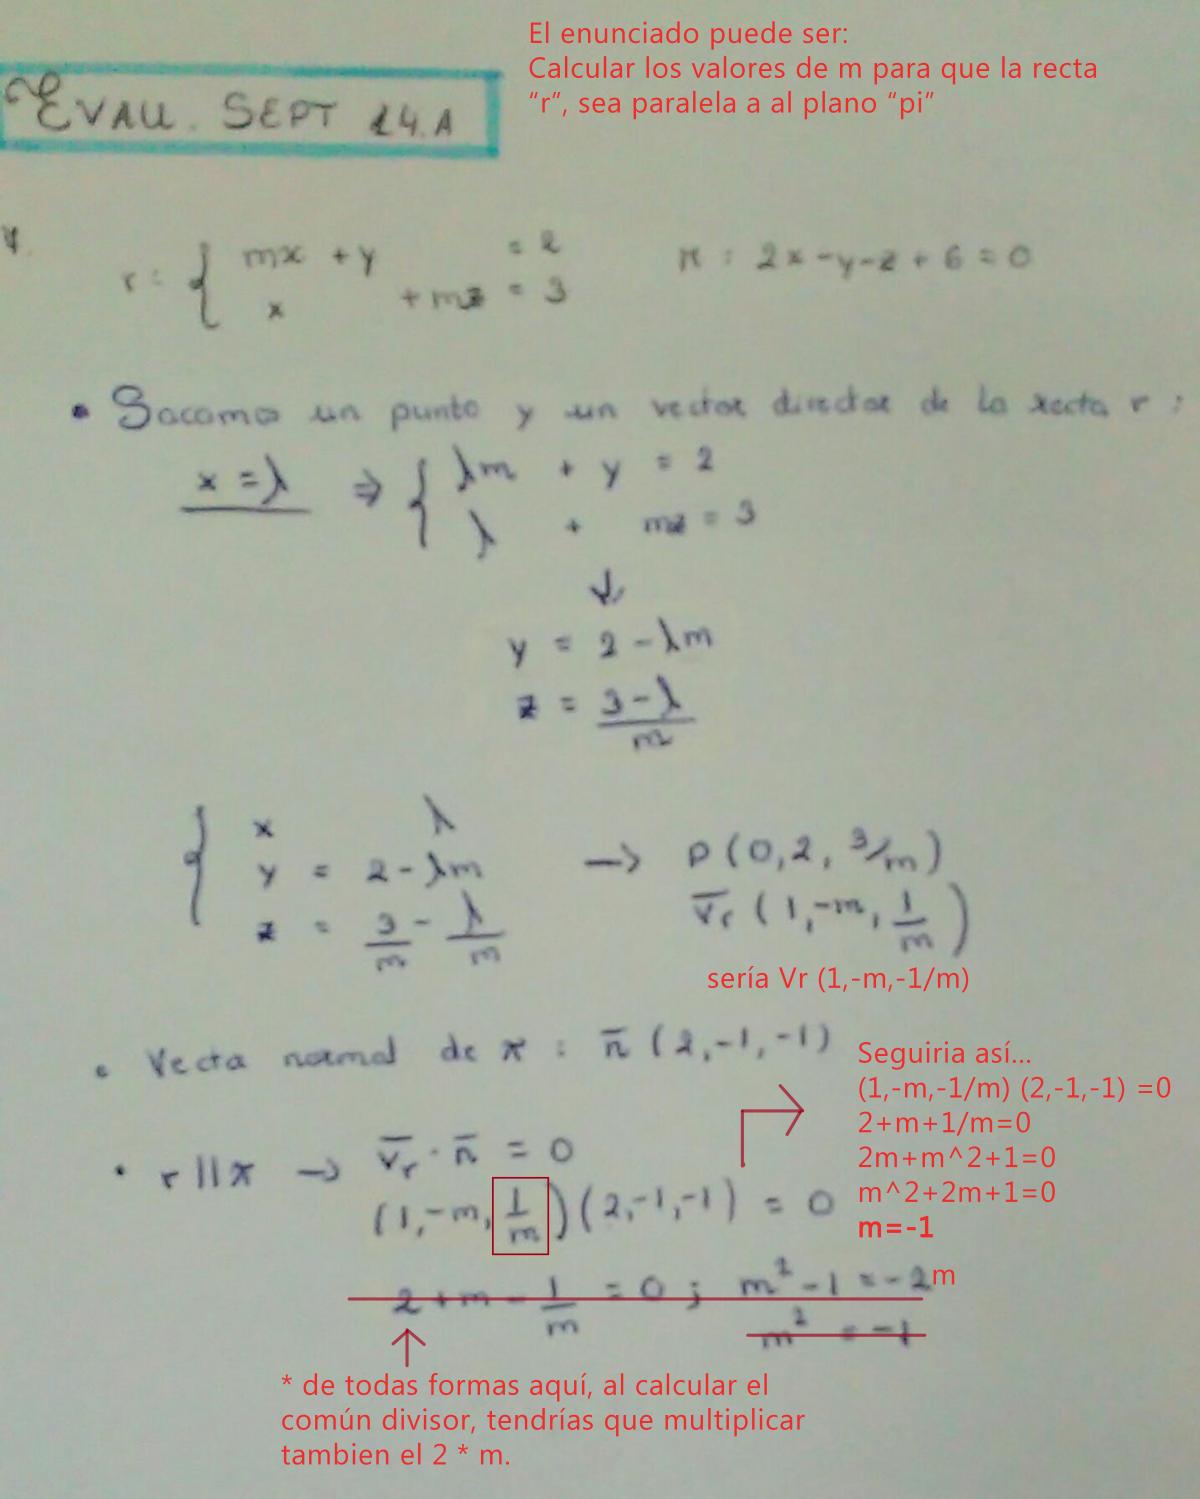 El enunciado puede ser:
Calcular los valores de m para que la recta
“r”, sea paralela a al plano “pi”
EVAU. SEPT 14.A
r: { mx + y = 2
x + mz = 3
π : 2x-y-z+6=0
• Sacamos un punto y un vector director de la recta r :
x = λ ⇒ { λm + y = 2
λ + mz = 3
↓
y = 2 - λm
z = (3 - λ)/m
{ x λ
y = 2 - λm → P(0,2, 3/m)
z = 3/m - λ/m v̄r (1,-m, 1/m)
sería Vr (1,-m,-1/m)
• Vecta normal de π : n̄ (2,-1,-1)
Seguiria así...
(1,-m,-1/m) (2,-1,-1) =0
2+m+1/m=0
2m+m^2+1=0
m^2+2m+1=0
m=-1
• r || π → v̄r · n̄ = 0
(1,-m, 1/m)(2,-1,-1) = 0
2 + m - 1/m = 0 ; m² - 1 = -2m
m² = -1
* de todas formas aquí, al calcular el
común divisor, tendrías que multiplicar
tambien el 2 * m.